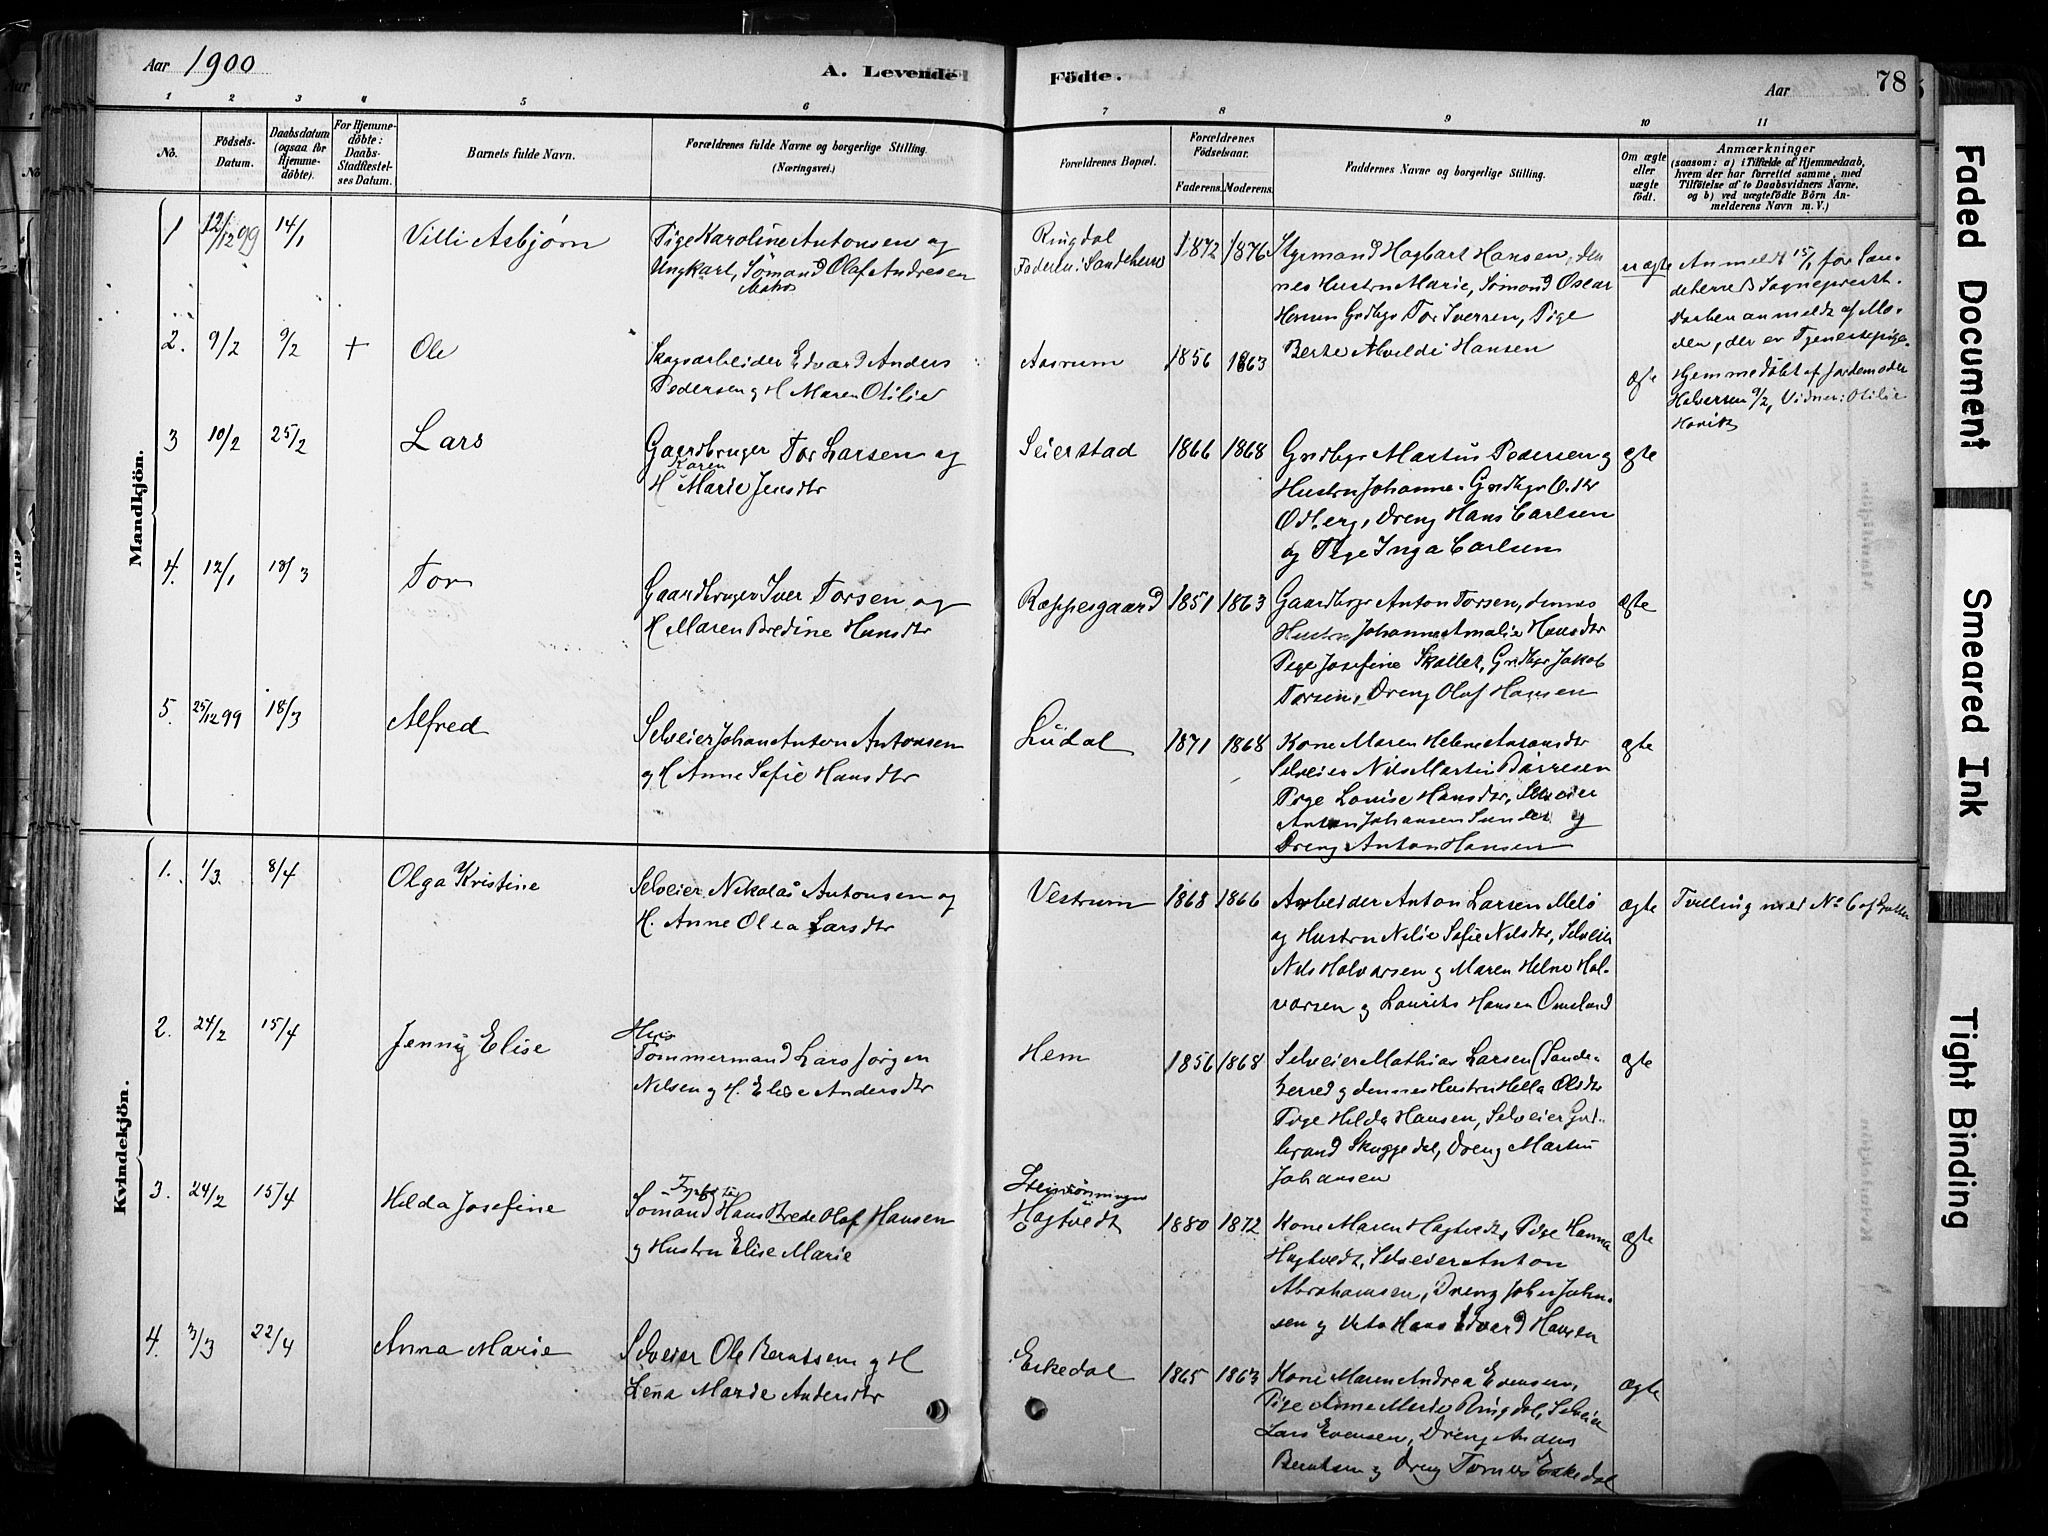 Aar 1900
A. Levende Fødte.
Aar
78
1 2 3 4 5 6 7 8 9 10 11
No.
Fødsels-Datum.
Daabsdatum (ogsaa for Hjemme-døbte).
For Hjemme-døbte: Daabs-Stadfæstel-ses Datum.
Barnets fulde Navn.
Forældrenes fulde Navne og borgerlige Stilling. (Næringsvei.)
Forældrenes Bopæl.
Forældrenes Fødselsaar.
Faderens. Moderens.
Faddernes Navne og borgerlige Stilling.
Om ægte eller uægte født.
Anmærkninger
(saasom: a) i Tilfælde af Hjemmedaab,
hvem der har forrettet samme, med
Tilføielse af to Daabsvidners Navne,
og b) ved uægtefødte Børn An-
melderens Navn m. V.)
Mandkjøn.
1 12/12 99 14/1 Villi Asbjørn
Pige Karoline Antonsen og
Ungkarl, Sømand Olaf Andresen
Matros
Ringdal
Faderen i Sandeherred
1872 1876
Styrmand Hagbart Hansen, den
nes Hustru Marie, Sømand Oscar
Hansen Grdbgr Tor Iversen, Pige
Berte Alvilde Hansen
uægte
Anmeldt 15/1 for San-
deherreds Sogneprest.
Daaben anmeldt af Mo-
deren, der er Tjenestepige.
2. 9/2 9/2 + Ole
Skogsarbeider Edvard Anders
Pedersen og H Maren Otilie
Aasrum 1856 1863
ægte
Hjemmedøbt af Jordemoder
Halvorsen 9/2, Vidner: Otilie
3 10/2 25/2 Lars
Gaardbruger Tor Larsen og
Karen
H Marie Jensdtr
Seierstad 1866 1868
Grdbgr Martin Pedersen og
Hustru Johanne. Grdbgr
Odberg, Dreng Hans Carlsen
og Pige Inga Carlsen
ægte
4. 12/1 18/3 Tor
Gaardbruger Iver Torsen og
H Maren Bredine Hansdtr
Ræppesgaard 1851 1863
Gaardbgr Anton Torsen, dennes
Hustru Johanne Amalie Hansdtr
Pige Josefine Skallet, Grdbgr Jakob
Torsen, Dreng Olaf Hansen
ægte
5. 25/12 99 18/3 Alfred
Selveier Johan Anton Antonsen
og H Anne Sofie Hansdtr
Lüdal 1871 1868
Kone Maren Helene Antonsdtr
Selveier Nils Martin Børresen
Pige Louise Hansdtr, Selveier
Anton Johansen Sundet og
Dreng Anton Hansen
ægte
Kvindekjøn.
1. 1/3. 8/4 Olga Kristine
Selveier Nikolai Antonsen og
H. Anne Olea Larsdtr
Vestrum 1868 1866
Arbeider Anton Larsen Melø
og Hustru Nilie Sofie Nilsdtr, Selveier
Nils Halvorsen og Maren Helene Hal-
vorsen og Laurits Hansen Omsland
ægte
Tvilling med No 6 af Gutter
2. 24/2 15/4 Jenny Elise
Hus
Tømmermand Lars Jørgen
Nilsen og H. Elise Andersdtr
Hem 1856 1868
Selveier Mathias Larsen (Sande-
herred og dennes Hustru Hella Olsdtr
Pige Hilda Hansen, Selveier Gul-
brand Skuggedal, Dreng Martin
Johansen
ægte
3. 24/2 15/4 Hilda Josefine
Sømand Hans Brede Olaf Hansen
og Hustru Elise Marie
Hagtvedt 1880 1872
Kone Maren Hagtvedt, Pige Hanna
Hagtvedt, Selveier Anton
Abrahamsen, Dreng Johs John-
sen og Hans Edvard Hansen
ægte
4. 3/3 22/4 Anna Marie
Selveier Ole Berntsen og H
Lena Marie Andersdtr
Eskedal 1865 1863
Kone Maren Andrea Evensen,
Pige Anne Marie Ringdal, Selveier
Lars Evensen, Dreng Anders
Berntsen og Dreng Eskedal
ægte
Faded Document
Smeared Ink
Tight Binding